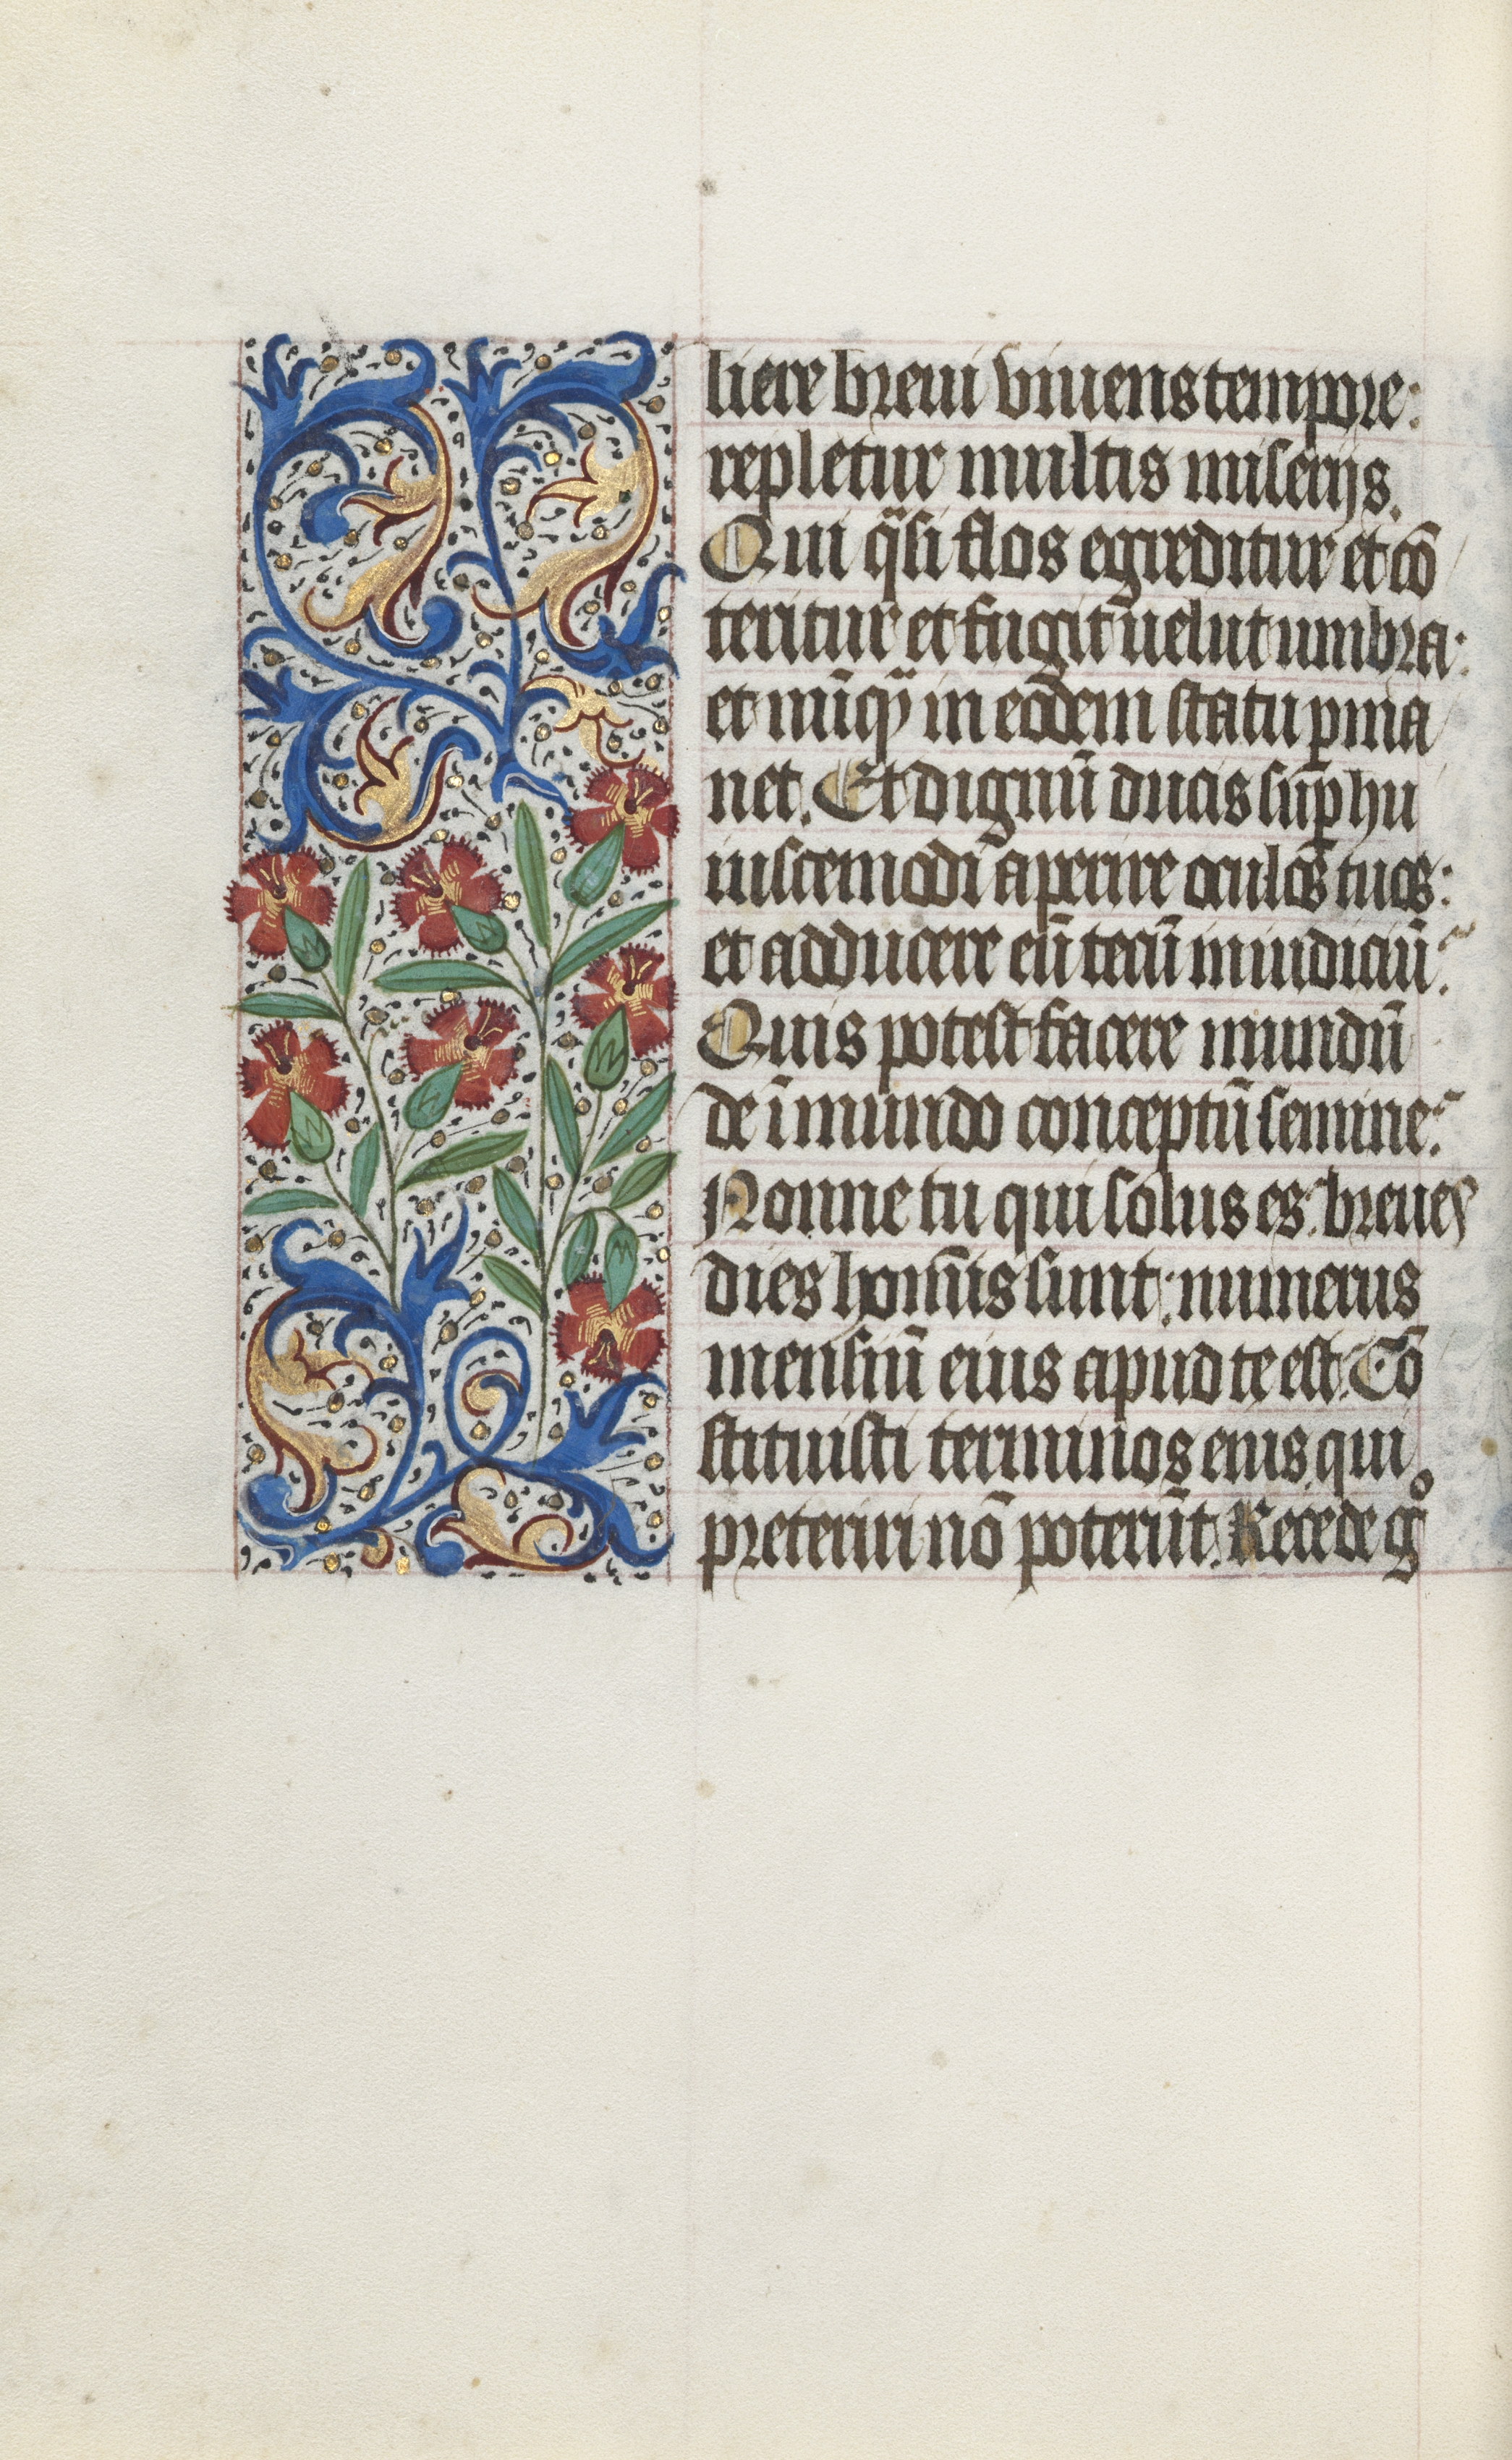 liere breui viuens tempore:
repletur multis miserijs.
Qui q̃si flos egreditur et cõ
teritur et fugit uelut umbra:
et nũq̃ in eodem statu ꝑma
net. Et dignũ ducis suꝑ hu
iuscemodi aperire oculos tuos:
et adducere eũ tecũ in iudiciũ?
Quis potest facere mundũ
de ĩmundo conceptũ semine?
Nonne tu qui solus es: breues
dies hom̃is sunt: numerus
mensiũ eius apud te est. Cõ
stituisti terminos eius qui
preteriri nõ poterũt. Recede gͦ